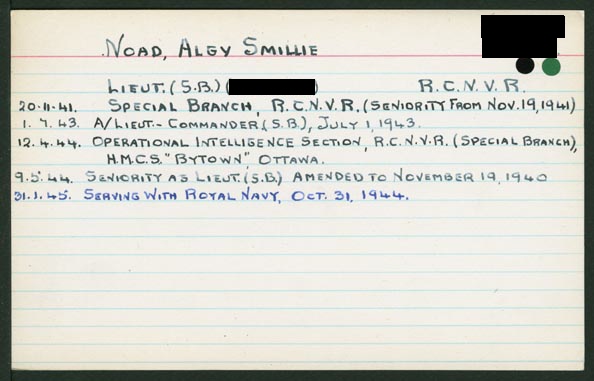 NOAD, ALGY SMILLIE
LIEUT. (S.B.) ( ) R.C.N.V.R.
20.11.41. SPECIAL BRANCH, R.C.N.V.R. (SENIORITY FROM NOV. 19, 1941)
1.7.43. A/LIEUT.-COMMANDER (S.B.), JULY 1, 1943.
12.4.44. OPERATIONAL INTELLIGENCE SECTION, R.C.N.V.R. (SPECIAL BRANCH),
H.M.C.S. "BYTOWN", OTTAWA.
9.5.44. SENIORITY AS LIEUT. (S.B.) AMENDED TO NOVEMBER 19, 1940
31.1.45. SERVING WITH ROYAL NAVY, OCT. 31, 1944.